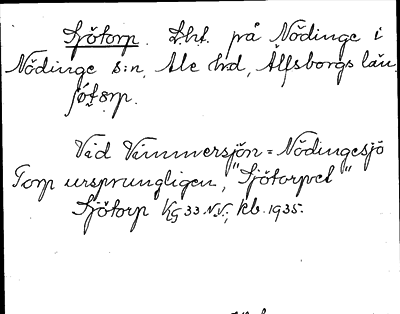 Sjötorp. Lht. på Nödinge i
Nödinge s:n, Ale hd, Älfsborgs län.
Vid Vimmersjön = Nödingesjö
Torp ursprungligen, "Sjötorpet"
Sjötorp Kg 33 N.V.; kb. 1935.